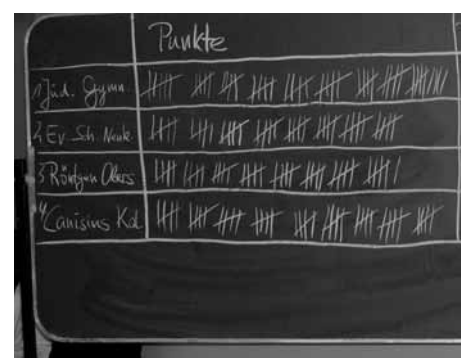 Punkte
1 Jüd. Gymn.
2 Ev. Sch. Neuk.
3 Röntgen Obers
4 Canisius Kol.